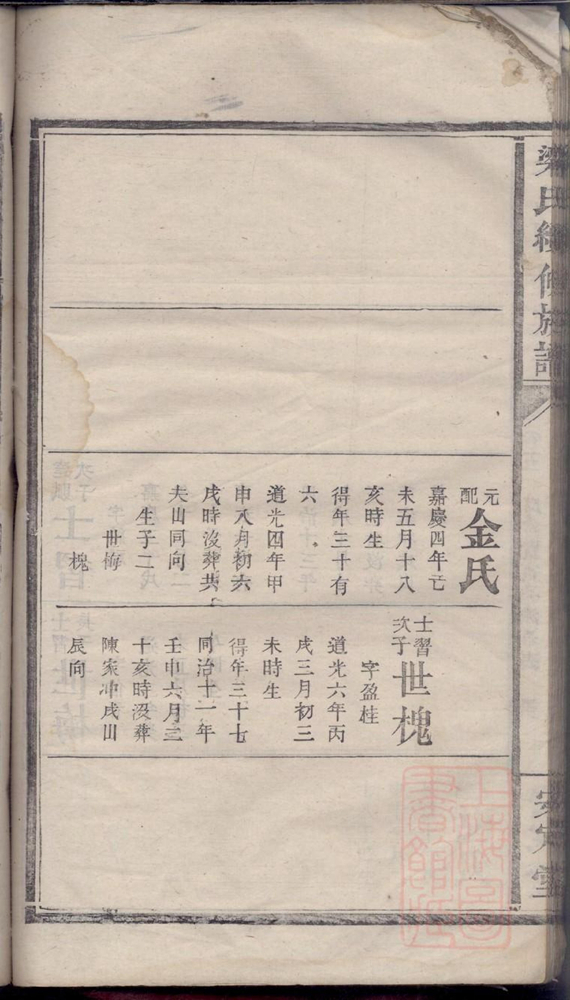 梁氏續修族譜
安定堂
元配金氏
嘉慶四年亡
未五月十八
亥時生
得年三十有
六
道光四年甲
申八月初六
戌時沒葬共
夫山同向
生子二
世梅
槐
士習次子世槐
字盈桂
道光六年丙
戌三月初三
未時生
得年三十七
同治十一年
壬申六月三
十亥時沒葬
陳家冲戌山
辰向
上海圖書館藏